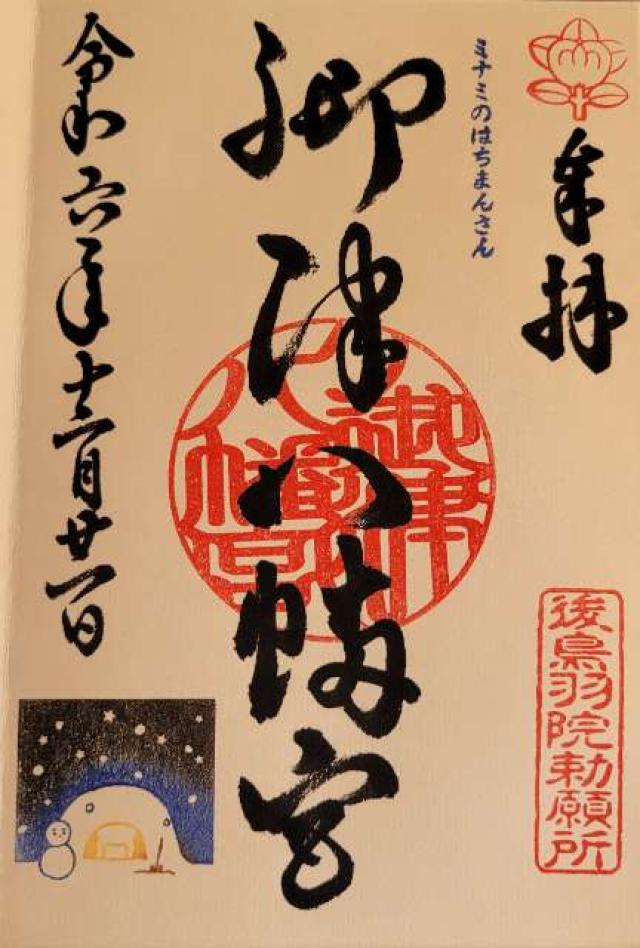 奉拝
後鳥羽院勅願所
ミナミのはちまんさん
御津八幡宮
御津八幡宮
令和六年十二月廿一日